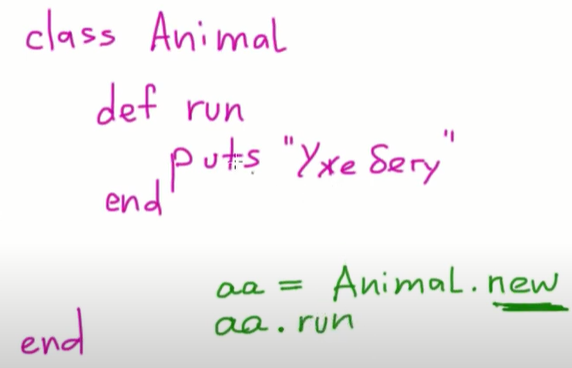 class Animal
def run
puts "Уже бегу"
end
aa = Animal.new
aa.run
end